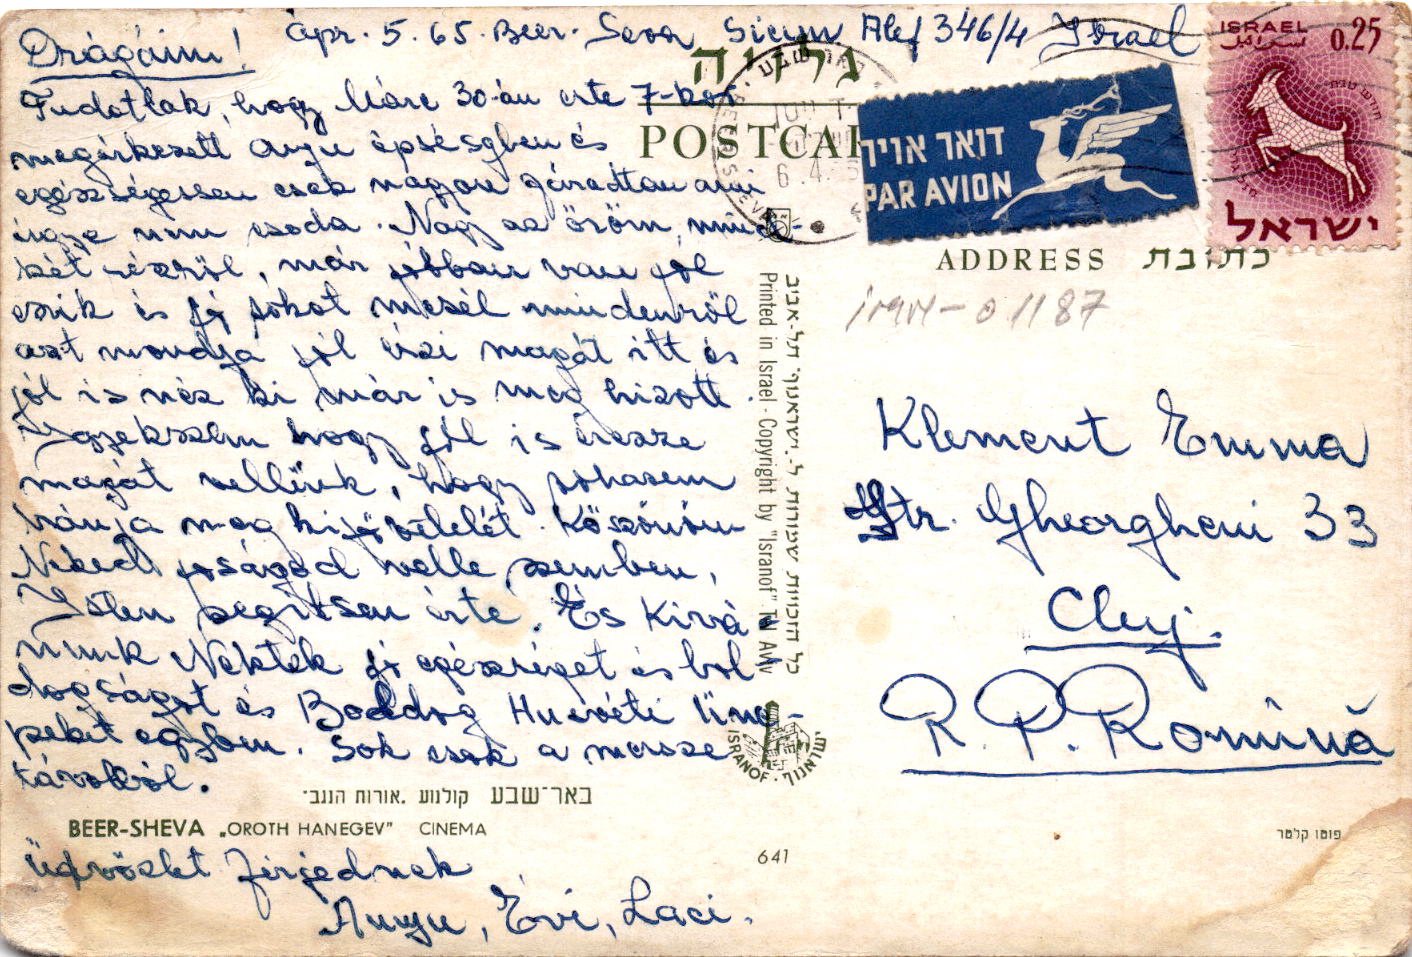 Ápr. 5. 65. Beer-Seva Sicum Alef 346/4 Israel
Drágáim!
Tudatlak, hogy Márc 30-án este 7-kor
megérkezett Anyu épségben és
egészségesen csak nagyon fáradtan ami
úgye nem csoda. Nagy az öröm, mind-
két részről, már jobban van jól
eszik és jó sokat mesél mindenről
azt mondja jól érzi magát itt és
jól is néz ki már is meg hizott.
Igyekszem hogy jól is érezze
magát nellünk, hogy sohasem
bánja meg kijövetelét. Köszönöm
Neked jóságod velle szemben,
Isten segítsen érte. És Kivá-
nunk Nektek jó egészséget és bol-
dogságot és Boldog Husvéti Ünne-
peket egyben. Sok csok a messze
távolból.
üdvözlet férjednek
Anyu, Évi, Laci.
גלויה
POSTCARD
דואר אויר
PAR AVION
ISRAEL 0.25
إسرائيل
ישראל
באר שבע
BEER SHEVA
6.4.65
ADDRESS כתובת
01187
Klement Emma
Str. Gheorgheni 33
Cluj.
R.P. Romînă
כל הזכויות שמורות ל"ישראנוף" תל-אביב
Printed in Israel · Copyright by "Isranof" Tel Aviv
ISRANOF · ישראנוף
באר־שבע קולנוע "אורות הנגב"
BEER-SHEVA „OROTH HANEGEV" CINEMA
641
פוטו קלטר